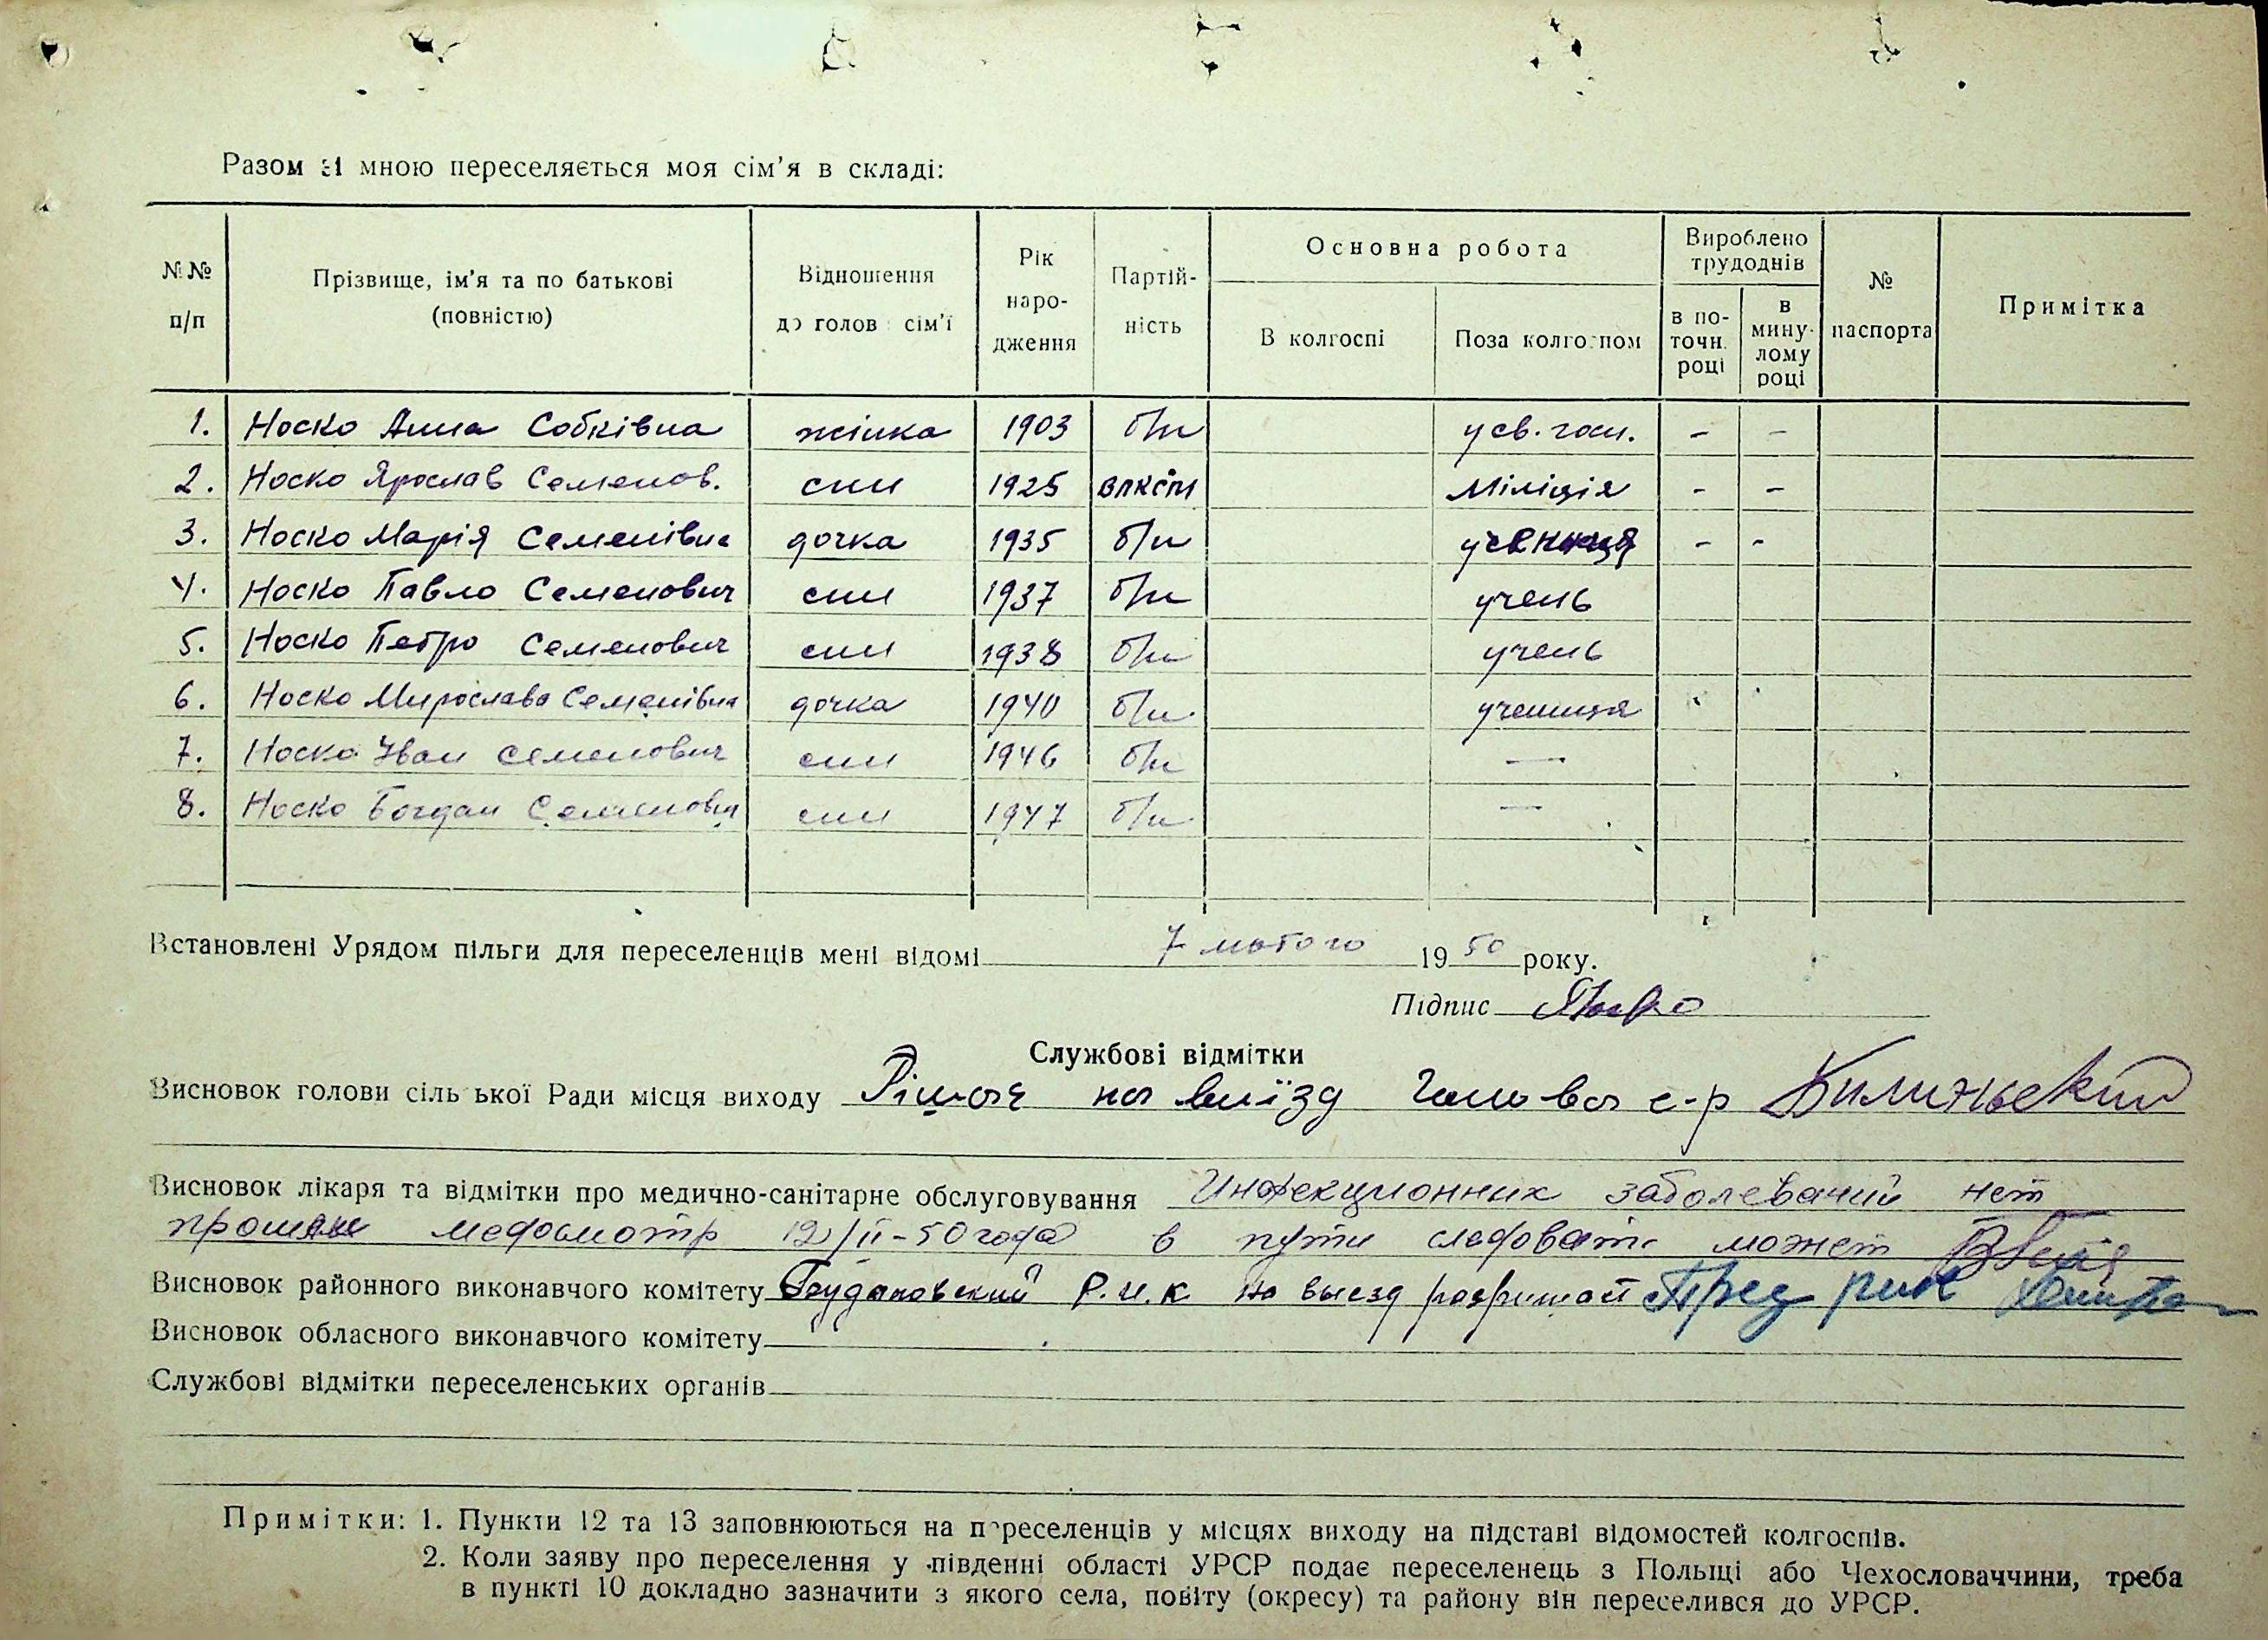 Разом зі мною переселяється моя сім'я в складі:
№№ п/п
Прізвище, ім'я та по батькові (повністю)
Відношення до голови сім'ї
Рік народження
Партійність
Основна робота
В колгоспі
Поза колгоспом
Вироблено трудоднів
в поточн. році
в минулому році
№ паспорта
Примітка
1. Носко Анна Собківна жінка 1903 б/п у св. госп. - -
2. Носко Ярослав Семенов. син 1925 ВЛКСМ Міліція - -
3. Носко Марія Семенівна дочка 1935 б/п учениця - -
4. Носко Павло Семенович син 1937 б/п учень
5. Носко Петро Семенович син 1938 б/п учень
6. Носко Мирослава Семенівна дочка 1940 б/п учениця
7. Носко Іван Семенович син 1946 б/п —
8. Носко Богдан Семенович син 1947 б/п —
Встановлені Урядом пільги для переселенців мені відомі 7 лютого 1950 року.
Підпис
Службові відмітки
Висновок голови сільської Ради місця виходу на виїзд Голова с-р
Висновок лікаря та відмітки про медично-санітарне обслуговування Инфекционних заболеваний нет
медосмотр 12/II-50 года в пути следовать может
Висновок районного виконавчого комітету Р.И.К на выезд Пред рик
Висновок обласного виконавчого комітету
Службові відмітки переселенських органів
Примітки: 1. Пункти 12 та 13 заповнюються на переселенців у місцях виходу на підставі відомостей колгоспів.
2. Коли заяву про переселення у південні області УРСР подає переселенець з Польщі або Чехословаччини, треба
в пункті 10 докладно зазначити з якого села, повіту (окресу) та району він переселився до УРСР.